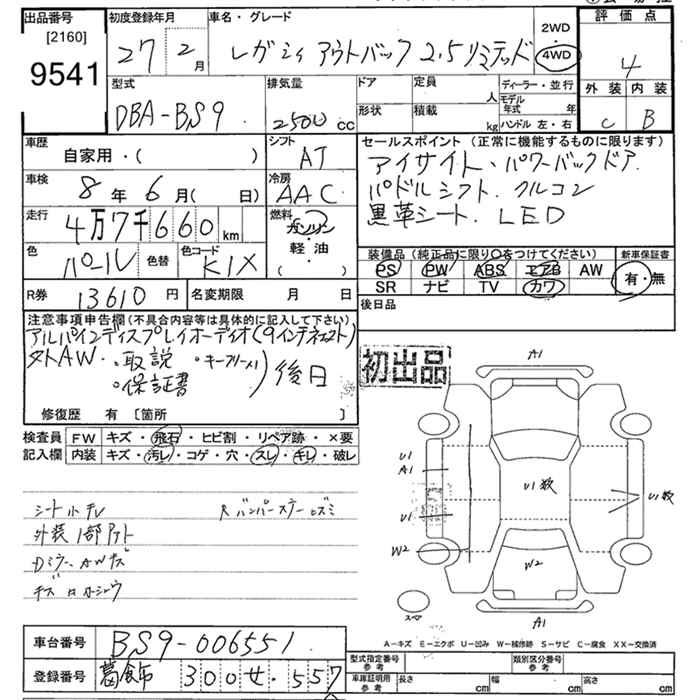 出品番号 [2160] 9541
初度登録年月 27 2月
車名・グレード レガシィ アウトバック 2.5リミテッド
2WD・4WD
評価点 4
外装 C 内装 B
型式 DBA-BS9
排気量 2500 cc
ドア 形状
定員 人
積載 kg
ディーラー・並行
モデル年式 年
ハンドル 左・右
車歴 自家用・( )
シフト AT
車検 8年6月( 日)
冷房 AAC
走行 4万7千660km
燃料 ガソリン 軽油 ( )
色 パール 色替 色コード K1X
R券 13610円
名変期限 月 日
セールスポイント(正常に機能するものに限ります)
アイサイト・パワーバックドア
パドルシフト・クルコン
黒革シート・LED
装備品(純正品に限り○をつけてください) 新車保証書
PS PW ABS エアB AW 有・無
SR ナビ TV カワ
後日品
注意事項申告欄(不具合内容等は具体的に記入して下さい)
アルパインディスプレイオーディオ
社外AW ・取説
・保証書 後日
修復歴 有〔箇所 〕
初出品
検査員記入欄 FW キズ・飛石・ヒビ割・リペア跡・×要
内装 キズ・汚レ・コゲ・穴・スレ・キレ・破レ
外装1部
Dミラー、AWキズ
A1
U1
A1
U1
W2
U1数
U1数
W2
A1
スペアー
A-キズ E-エクボ U-凹み W-補修跡 S-サビ C-腐食 XX-交換済
車台番号 BS9-006551
登録番号 葛飾 300せ・557
型式指定番号 参考
類別区分番号 参考
車庫証明用 参考 長さ cm 幅 cm 高さ cm